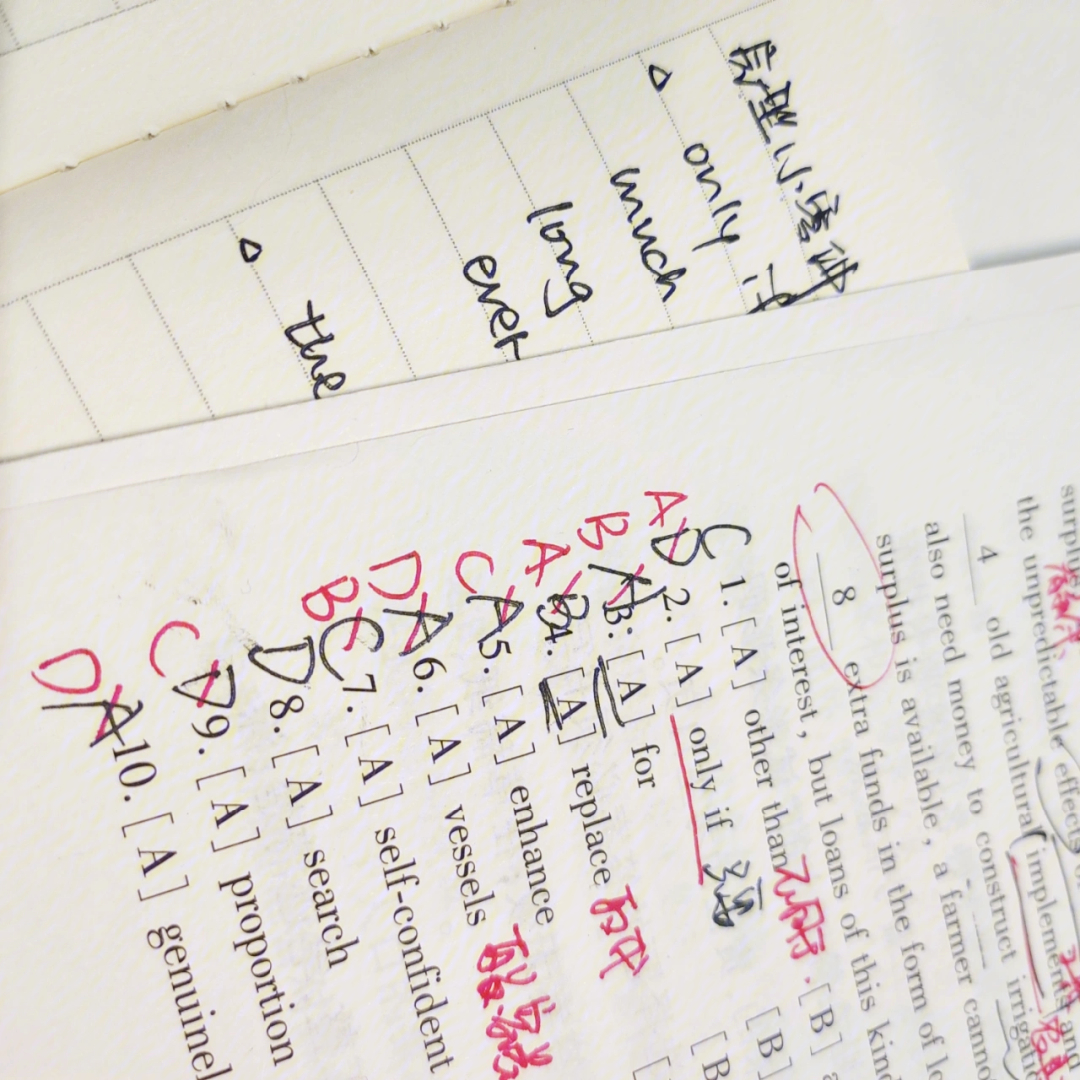 only if
much
long
ever
the
surpl
the unpredictable effects
4 old agricultural implements and
also need money to construct irrigati
surplus is available, a farmer canno
8 extra funds in the form of lo
of interest, but loans of this kind
C 1. [A] other than [B] a
A B 2. [A] only if [B]
B A 3. [A] for [B
A B 4. [A] replace 取代 [
C A 5. [A] enhance
D A 6. [A] vessels
B C 7. [A] self-confident
D 8. [A] search
C D 9. [A] proportion
D A 10. [A] genuinel